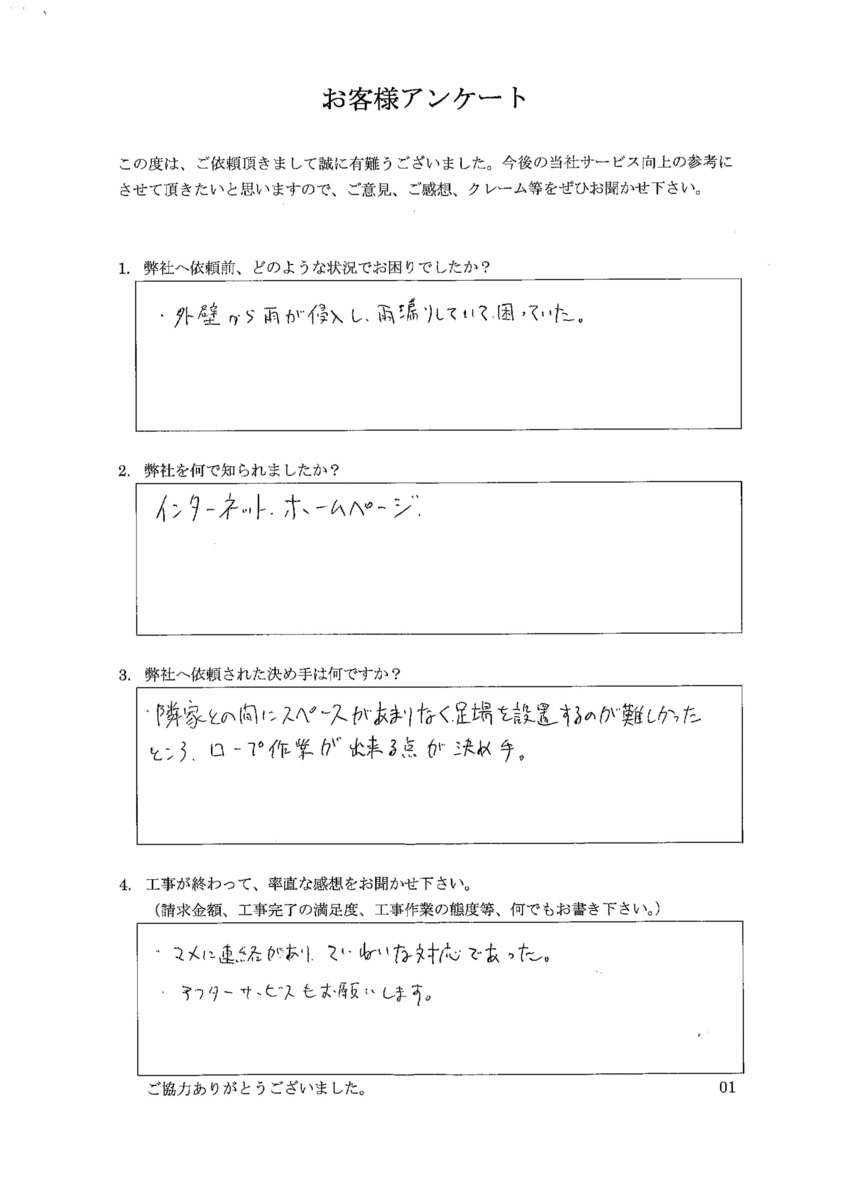 お客様アンケート
この度は、ご依頼頂きまして誠に有難うございました。今後の当社サービス向上の参考に
させて頂きたいと思いますので、ご意見、ご感想、クレーム等をぜひお聞かせ下さい。
1. 弊社へ依頼前、どのような状況でお困りでしたか？
・外壁から雨が侵入し、雨漏りしていて、困っていた。
2. 弊社を何で知られましたか？
インターネット、ホームページ.
3. 弊社へ依頼された決め手は何ですか？
・隣家との間にスペースがあまりなく、足場を設置するのが難しかった
ところ、ロープ作業が出来る点が決め手。
4. 工事が終わって、率直な感想をお聞かせ下さい。
（請求金額、工事完了の満足度、工事作業の態度等、何でもお書き下さい。）
・マメに連絡があり、ていねいな対応であった。
・アフターサービスもお願いします。
ご協力ありがとうございました。
01